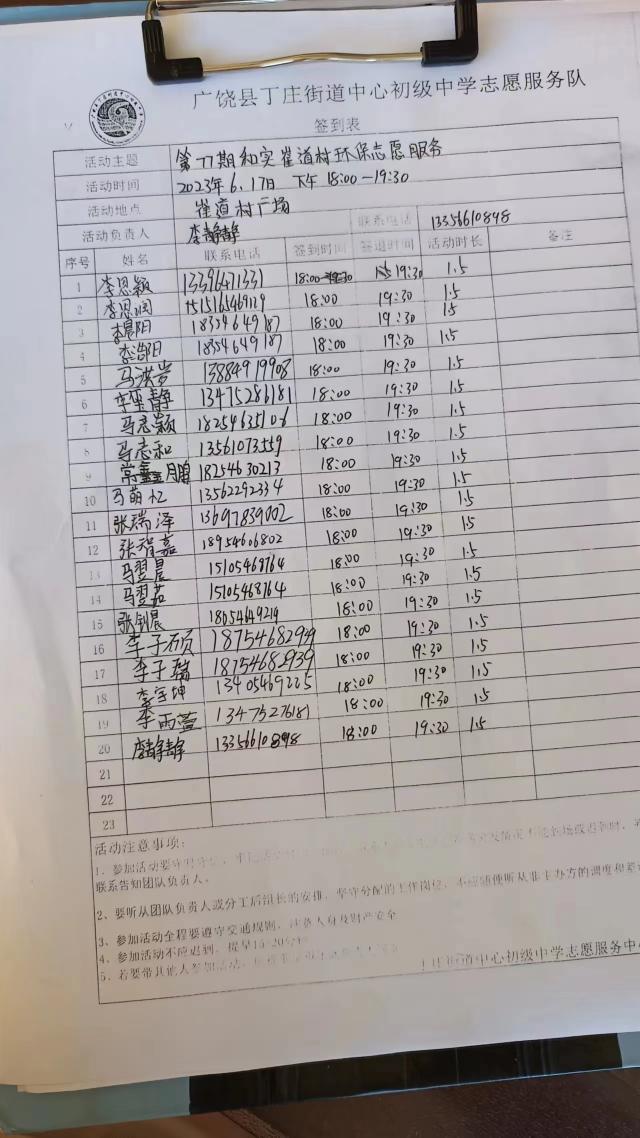 广饶县丁庄街道中心初级中学志愿服务队
签到表
活动主题 第77期和实崔道村环保志愿服务
活动时间 2023年6.17日 下午18:00-19:30
活动地点 崔道村广场
活动负责人 李静静 联系电话 13356610898
序号 姓名 联系电话 签到时间 签退时间 活动时长 备注
1 李思颖 13396471331 18:00 19:30 1.5
2 李思润 18:00 19:30 1.5
3 李晨阳 18354649187 18:00 19:30 1.5
4 18354649187 18:00 19:30 1.5
5 马洪岩 13884919908 18:00 19:30 1.5
6 13475286181 18:00 19:30 1.5
7 马志颖 18254635106 18:00 19:30 1.5
8 马志和 13561073559 18:00 19:30 1.5
9 常鑫鹏 18254630213 18:00 19:30 1.5
10 马萌忆 13562292334 18:00 19:30 1.5
11 张瑞泽 13697839002 18:00 19:30 1.5
12 张智嘉 18954606802 18:00 19:30 1.5
13 马翌晨 15105468764 18:00 19:30 1.5
14 马翌茹 15105468764 18:00 19:30 1.5
15 张钊晨 18654649219 18:00 19:30 1.5
16 李子硕 18754682939 18:00 19:30 1.5
17 李子瑞 18754682939 18:00 19:30 1.5
18 李宇坤 13405469225 18:00 19:30 1.5
19 李雨萱 13475276181 18:00 19:30 1.5
20 李静静 13356610898 18:00 19:30 1.5
21
22
23
活动注意事项:
1、参加活动要
联系告知团队负责人。
2、要听从团队负责人或分工后组长的安排,坚守分配的工作岗位,不应随便听从非主办方的调度和
3、参加活动全程要遵守交通规则,注意人身及财产安全
4、参加活动不应迟到,提早10-20分钟
5、若要带其他人参加活动,
丁庄街道中心初级中学志愿服务中